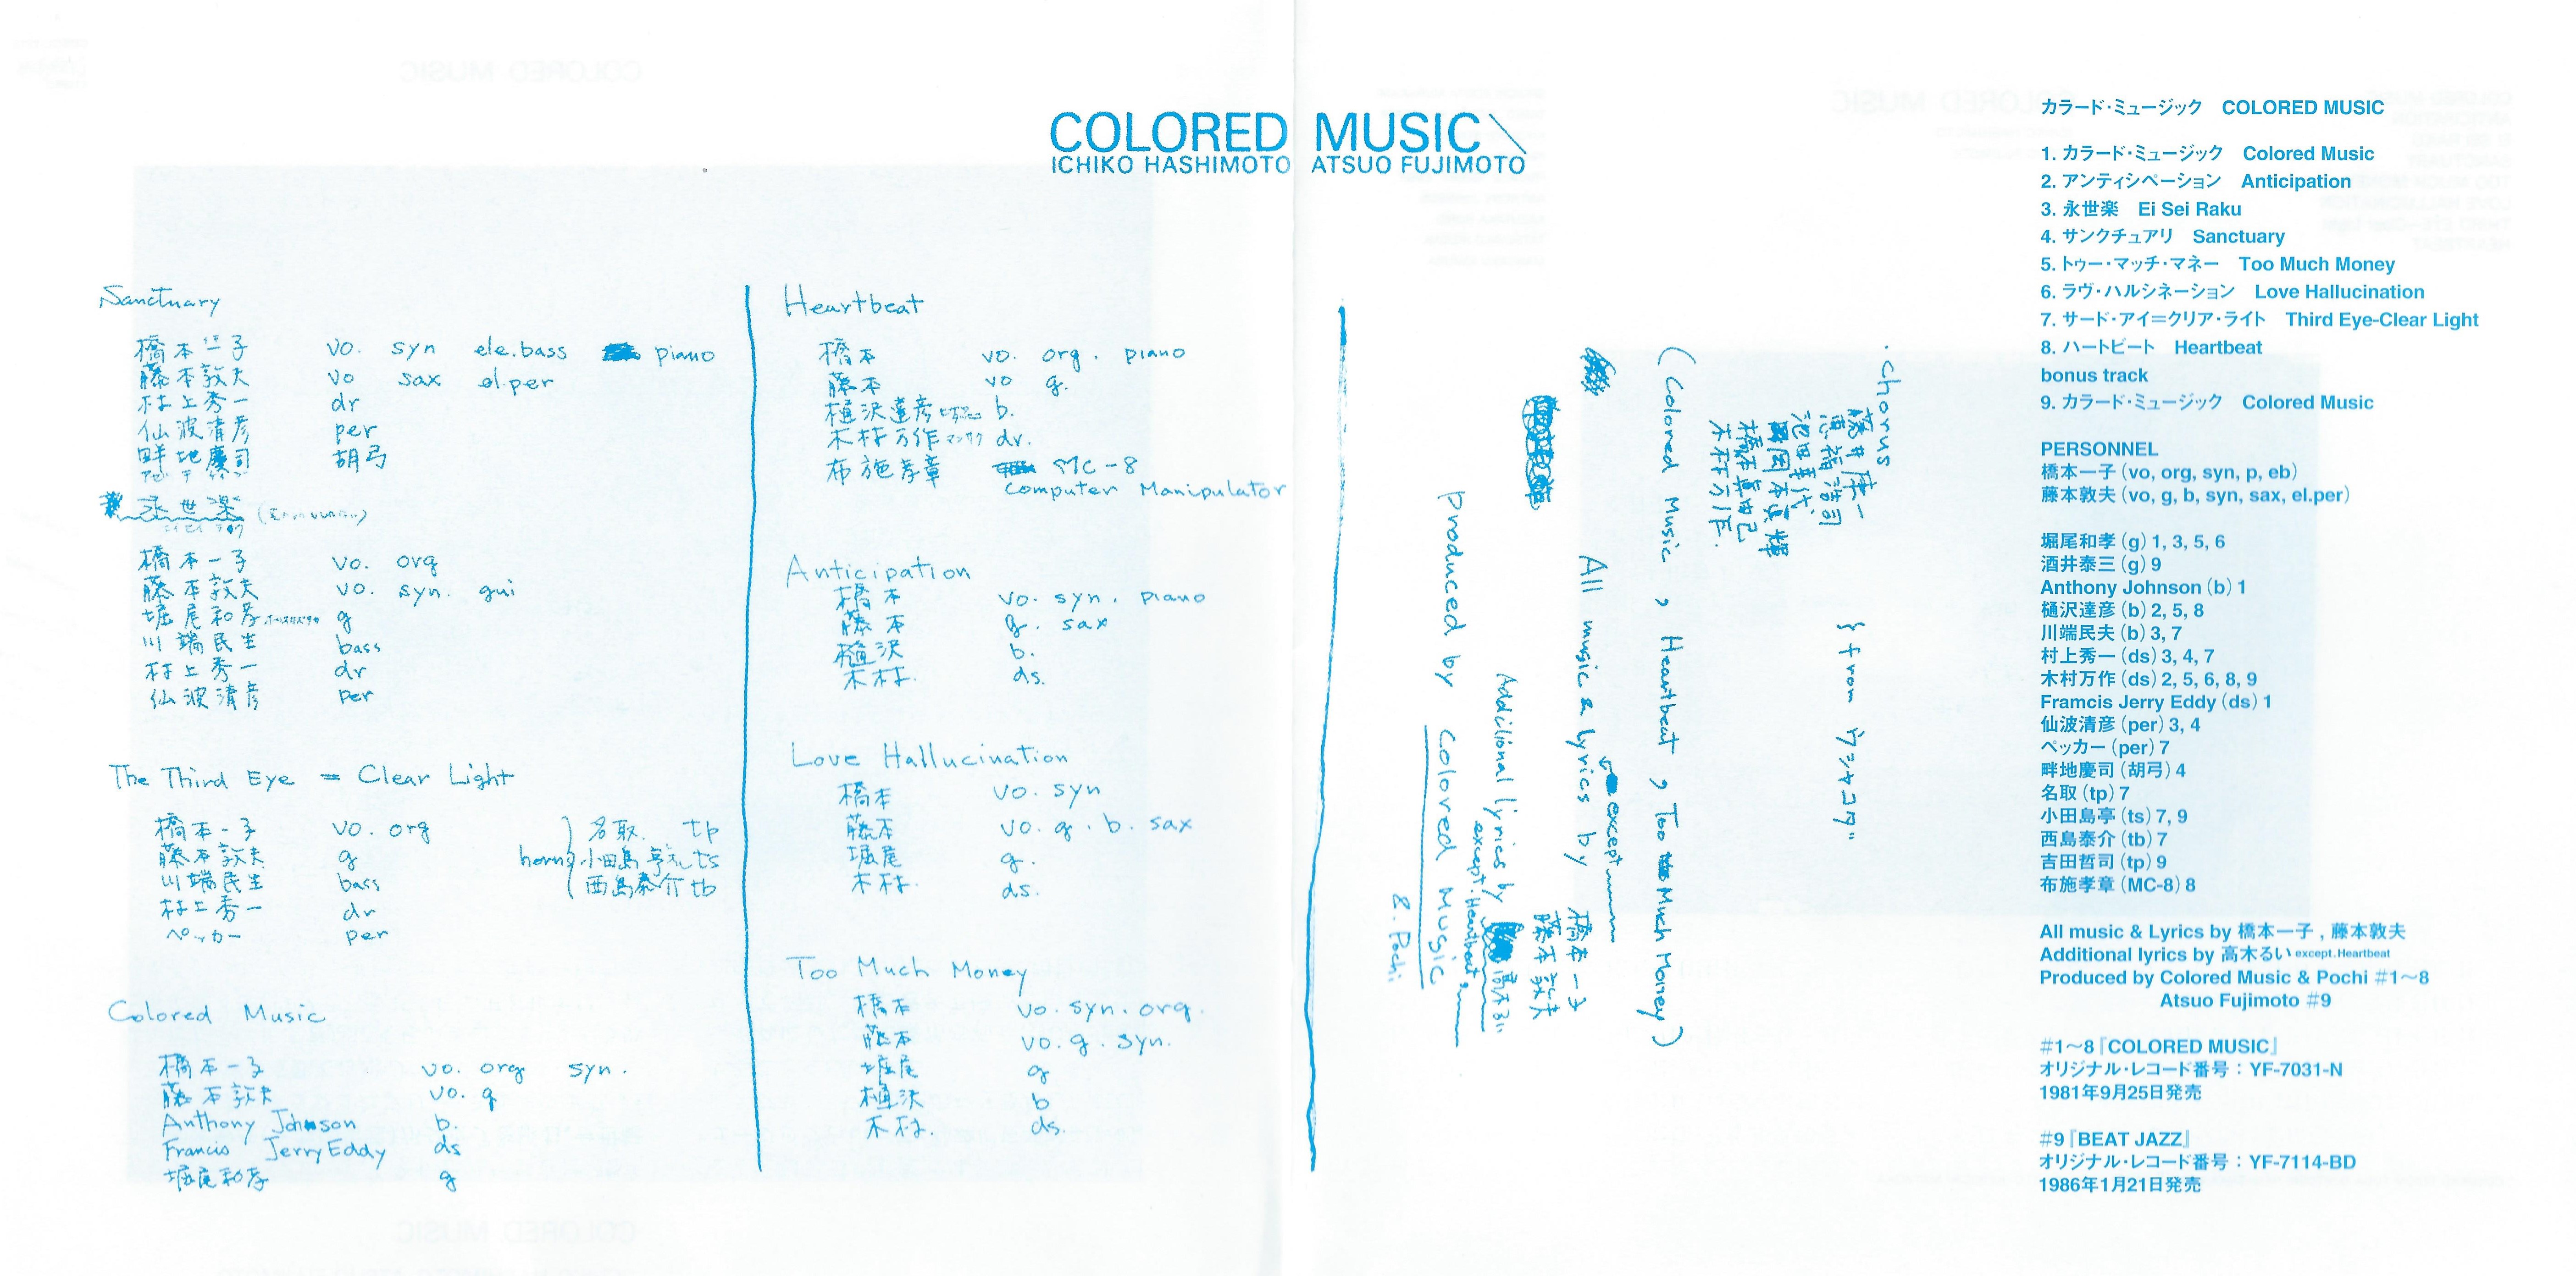 COLORED MUSIC\
ICHIKO HASHIMOTO ATSUO FUJIMOTO
Sanctuary
橋本一子 vo. syn ele.bass piano
藤本敦夫 vo sax el.per
村上秀一 dr
仙波清彦 per
畔地慶司 胡弓
アゼチ ケイジ
永世楽
エイセイラク
橋本一子 vo. org
藤本敦夫 vo. syn. gui
堀尾和孝 g
川端民生 bass
村上秀一 dr
仙波清彦 per
The Third Eye = Clear Light
橋本一子 vo. org
藤本敦夫 g
川端民生 bass
村上秀一 dr
ペッカー per
horn
名取. tp
小田島亨 ts
西島泰介 tb
Colored Music
橋本一子 vo. org syn.
藤本敦夫 vo. g
Anthony Johnson b.
Francis Jerry Eddy ds
堀尾和孝 g
Heartbeat
橋本 vo. org. piano
藤本 vo g.
樋沢達彦 b.
木村万作 マンサク dr.
布施孝章 MC-8
Computer Manipulator
Anticipation
橋本 vo. syn. piano
藤本 g. sax
樋沢 b.
木村. ds.
Love Hallucination
橋本 vo. syn
藤本 vo. g. b. sax
堀尾 g.
木村. ds.
Too Much Money
橋本 vo. syn. org.
藤本 vo. g. syn.
堀尾 g
樋沢 b
木村. ds.
・chorus
藤井康一
池田美代
橋本真由己
木村万作.
{ from ウシャコダ"
(Colored Music, Heartbeat, Too Much Money)
All music & Lyrics by 橋本一子
藤本敦夫
except
Additional lyrics by 高木るい
except. Heartbeat
Produced by Colored Music
& Pochi
カラード・ミュージック COLORED MUSIC
1. カラード・ミュージック Colored Music
2. アンティシペーション Anticipation
3. 永世楽 Ei Sei Raku
4. サンクチュアリ Sanctuary
5. トゥー・マッチ・マネー Too Much Money
6. ラヴ・ハルシネーション Love Hallucination
7. サード・アイ＝クリア・ライト Third Eye-Clear Light
8. ハートビート Heartbeat
bonus track
9. カラード・ミュージック Colored Music
PERSONNEL
橋本一子 (vo, org, syn, p, eb)
藤本敦夫 (vo, g, b, syn, sax, el.per)
堀尾和孝 (g) 1, 3, 5, 6
酒井泰三 (g) 9
Anthony Johnson (b) 1
樋沢達彦 (b) 2, 5, 8
川端民夫 (b) 3, 7
村上秀一 (ds) 3, 4, 7
木村万作 (ds) 2, 5, 6, 8, 9
Framcis Jerry Eddy (ds) 1
仙波清彦 (per) 3, 4
ペッカー (per) 7
畔地慶司 (胡弓) 4
名取 (tp) 7
小田島亭 (ts) 7, 9
西島泰介 (tb) 7
吉田哲司 (tp) 9
布施孝章 (MC-8) 8
All music & Lyrics by 橋本一子 , 藤本敦夫
Additional lyrics by 高木るい except.Heartbeat
Produced by Colored Music & Pochi #1〜8
Atsuo Fujimoto #9
#1〜8『COLORED MUSIC』
オリジナル・レコード番号：YF-7031-N
1981年9月25日発売
#9『BEAT JAZZ』
オリジナル・レコード番号：YF-7114-BD
1986年1月21日発売